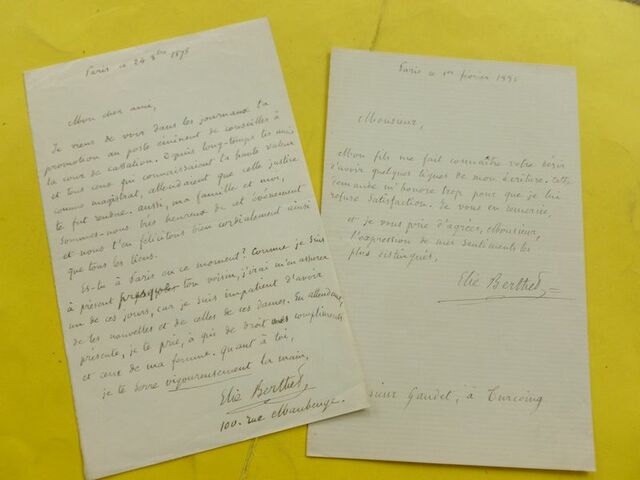 Paris ce 24 8bre 1878
Mon cher ami,
Je viens de voir dans les journaux ta
promotion au poste éminent de conseiller à
la cour de cassation. Depuis long-temps tes amis
et tous ceux qui connaissaient ta haute valeur
comme magistrat, attendaient que cette justice
te fut rendue. aussi, ma famille et moi,
sommes-nous très heureux de cet événement
et nous t'en félicitons bien cordialement ainsi
que tous les tiens.
Es-tu à Paris en ce moment? Comme je suis
à présent presque ton voisin, j'irai m'en assurer
un de ces jours, car je suis impatient d'avoir
de tes nouvelles et de celles de ces dames. En attendant,
présente, je te prie, à qui de droit mes compliments
et ceux de ma femme. quant à toi,
je te serre vigoureusement la main,
Elie Berthet,
100. rue Maubeuge.
Paris ce 1er février 1885
Monsieur,
Mon fils me fait connaître votre désir
d'avoir quelques lignes de mon écriture. Cette
demande m'honore trop pour que je lui
refuse satisfaction. Je vous en remercie,
et je vous prie d'agréer, Monsieur,
l'expression de mes sentiments les
plus distingués,
Elie Berthet
sieur Gaudet, à Turcoing